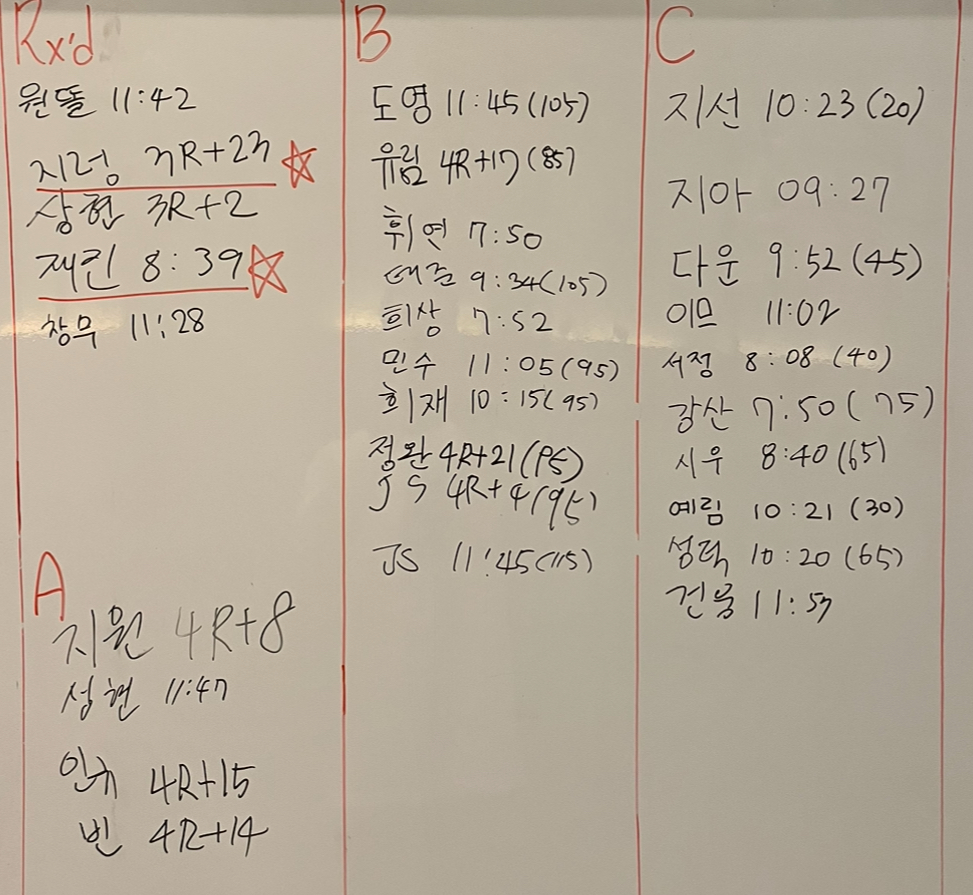 Rx'd
원똘 11:42
지렁 3R+23
상현 3R+2
재린 8:39
창무 11:28
A
지원 4R+8
성현 11:47
4R+15
빈 4R+14
B
도영 11:45(105)
유림 4R+17(85)
휘연 7:50
태준 9:34(105)
희상 7:52
민수 11:05(95)
희재 10:15(95)
정완 4R+21(95)
JS 4R+4(95)
JS 11:45(115)
C
지선 10:23(20)
지아 09:27
다운 9:52(45)
이므 11:02
서정 8:08(40)
강산 7:50(75)
시우 8:40(65)
예림 10:21(30)
성택 10:20(65)
건웅 11:53